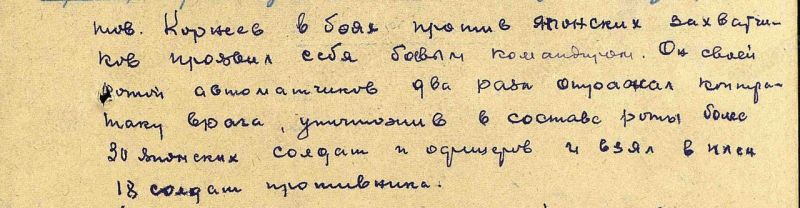 тов. Корнеев в боях против японских захватчи-
ков проявил себя боевым командиром. Он своей
ротой автоматчиков два раза отражал контра-
таку врага, уничтожив в составе роты более
30 японских солдат и офицеров и взял в плен
18 солдат противника.